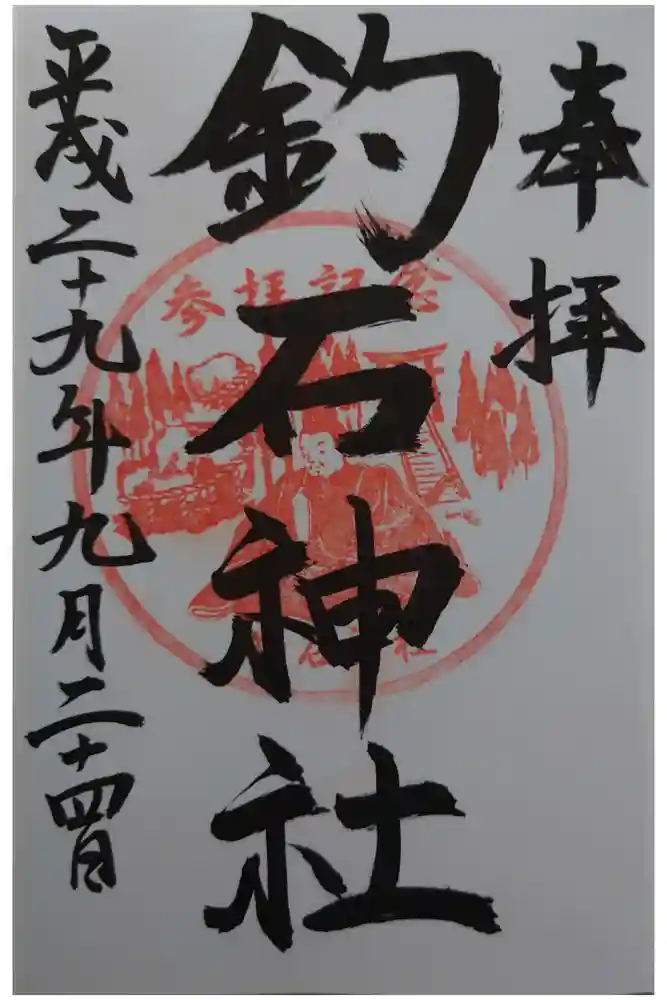 奉拝
釣石神社
平成二十九年九月二十四日
参拝記念